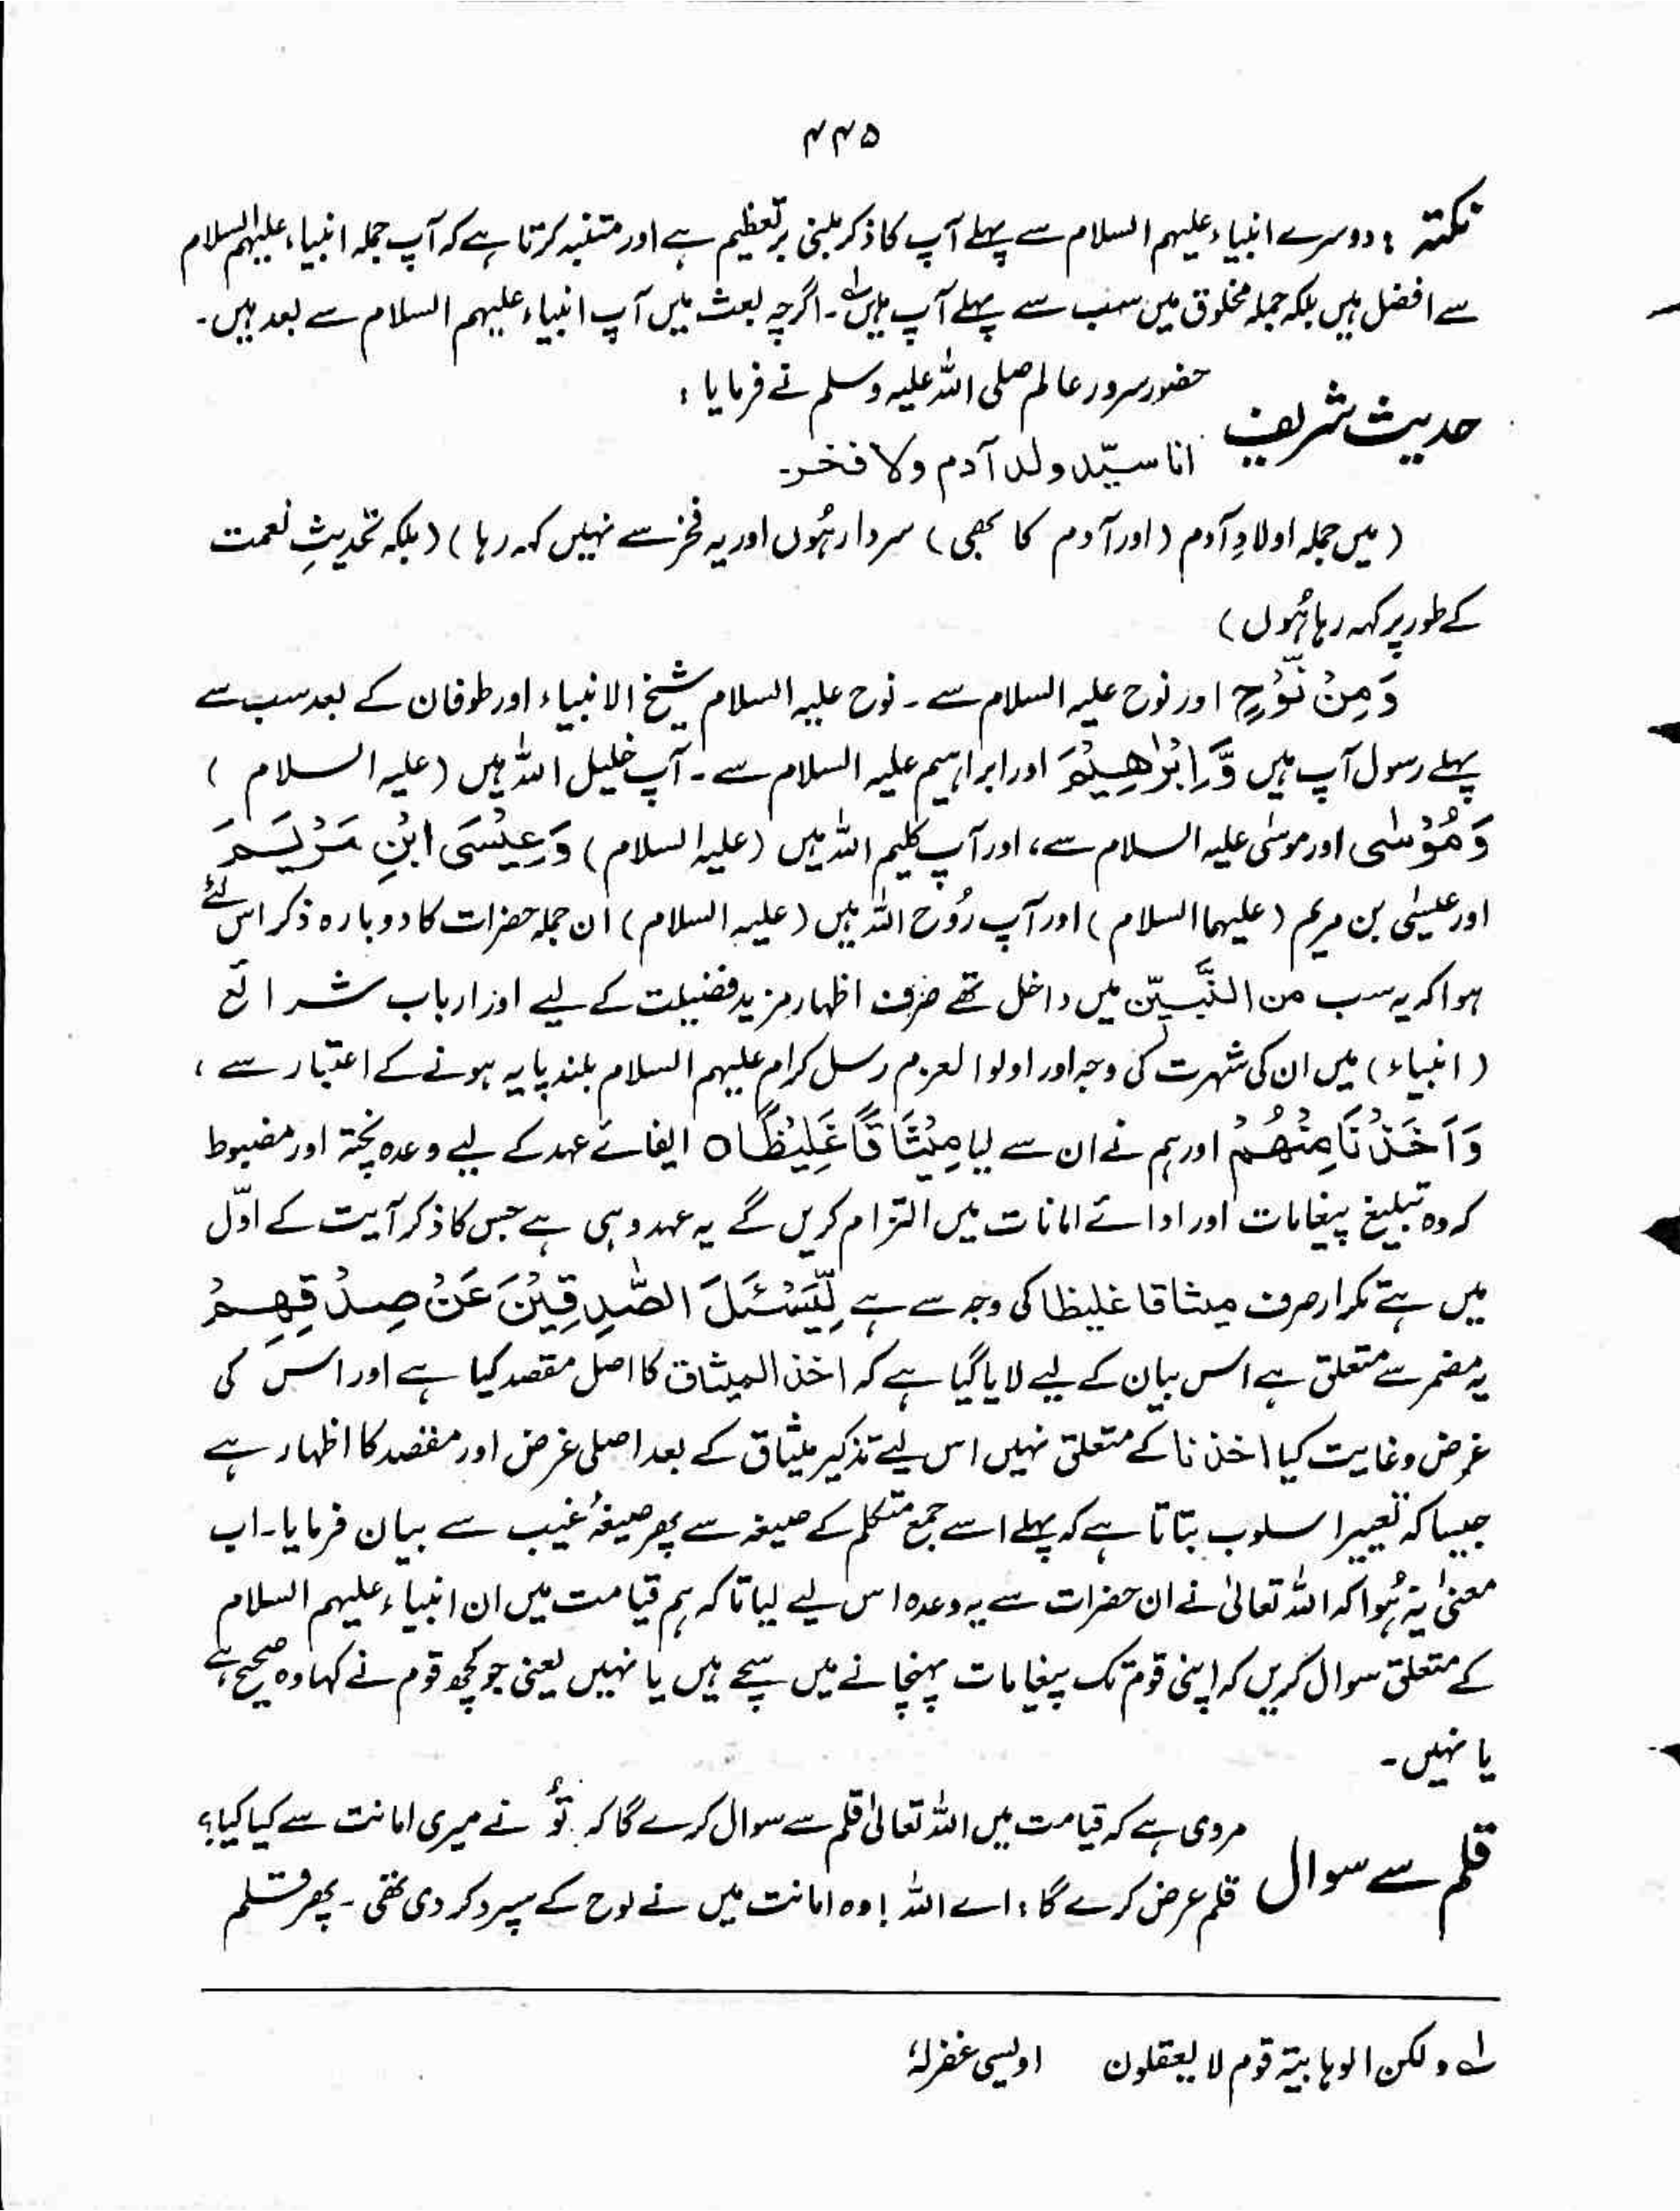 ۴۴۵
نکتہ : دوسرے انبیاء علیہم السلام سے پہلے آپ کا ذکر مبنی بر تعظیم ہے اور متنبہ کرتا ہے کہ آپ جملہ انبیاء علیہم السلام
سے افضل ہیں بلکہ جملہ مخلوق میں سب سے پہلے آپ ہیں ؎۱۔ اگرچہ بعثت میں آپ انبیاء علیہم السلام سے بعد ہیں۔
حدیث شریف
حضور سرور عالم صلی اللہ علیہ وسلم نے فرمایا :
انا سیّد ولد آدم ولا فخر۔
(میں جملہ اولادِ آدم (اور آدم کا بھی) سردار ہُوں اور یہ فخر سے نہیں کہہ رہا) (بلکہ تحدیثِ نعمت
کے طور پر کہہ رہا ہُوں)
وَمِنْ نُّوْحٍ اور نوح علیہ السلام سے۔ نوح علیہ السلام شیخ الانبیاء اور طوفان کے بعد سب سے
پہلے رسول آپ ہیں وَّاِبْرٰهِيْمَ اور ابراہیم علیہ السلام سے۔ آپ خلیل اللہ ہیں (علیہ السلام)
وَمُوْسٰى اور موسٰی علیہ السلام سے، اور آپ کلیم اللہ ہیں (علیہ السلام) وَعِيْسَى ابْنِ مَرْيَمَ
اور عیسٰی بن مریم (علیہما السلام) اور آپ رُوح اللہ ہیں (علیہ السلام) ان جملہ حضرات کا دوبارہ ذکر اس لئے
ہوا کہ یہ سب من النَّبیّن میں داخل تھے صرف اظہار مزید فضیلت کے لیے اور ارباب شرائع
(انبیاء) میں ان کی شہرت کی وجہ اور اولوا العزم رسل کرام علیہم السلام بلند پایہ ہونے کے اعتبار سے ،
وَاَخَذْنَا مِنْهُمْ اور ہم نے ان سے لیا مِيْثَاقًا غَلِيْظًا ٥ ایفائے عہد کے لیے وعدہ پختہ اور مضبوط
کہ وہ تبلیغ پیغامات اور ادائے امانات میں التزام کریں گے یہ عہد وہی ہے جس کا ذکر آیت کے اوّل
میں ہے تکرار صرف میثاقا غلیظا کی وجہ سے ہے لِّيَسْـَٔلَ الصّٰدِقِيْنَ عَنْ صِدْقِهِمْ
یہ مضمر سے متعلق ہے اس بیان کے لیے لایا گیا ہے کہ اخذ المیثاق کا اصل مقصد کیا ہے اور اس کی
غرض و غایت کیا اخذنا کے متعلق نہیں اس لیے تذکیر میثاق کے بعد اصلی غرض اور مقصد کا اظہار ہے
جیسا کہ تعبیرا سلوب بتاتا ہے کہ پہلے اسے جمع متکلم کے صیغہ سے پھر صیغۂ غیب سے بیان فرمایا۔ اب
معنیٰ یہ ہُوا کہ اللہ تعالیٰ نے ان حضرات سے یہ وعدہ اس لیے لیا تاکہ ہم قیامت میں ان انبیاء علیہم السلام
کے متعلق سوال کریں کہ اپنی قوم تک پیغامات پہنچانے میں سچے ہیں یا نہیں یعنی جو کچھ قوم نے کہا وہ صحیح ہے
یا نہیں۔
قلم سے سوال
مروی ہے کہ قیامت میں اللہ تعالیٰ قلم سے سوال کرے گا کہ تُو نے میری امانت سے کیا کیا؟
قلم عرض کرے گا : اے اللہ ! وہ امانت میں نے لوح کے سپرد کر دی تھی۔ پھر قلم
؎۱ ولکن الوہابیۃ قوم لا یعقلون اویسی غفرلہٗ